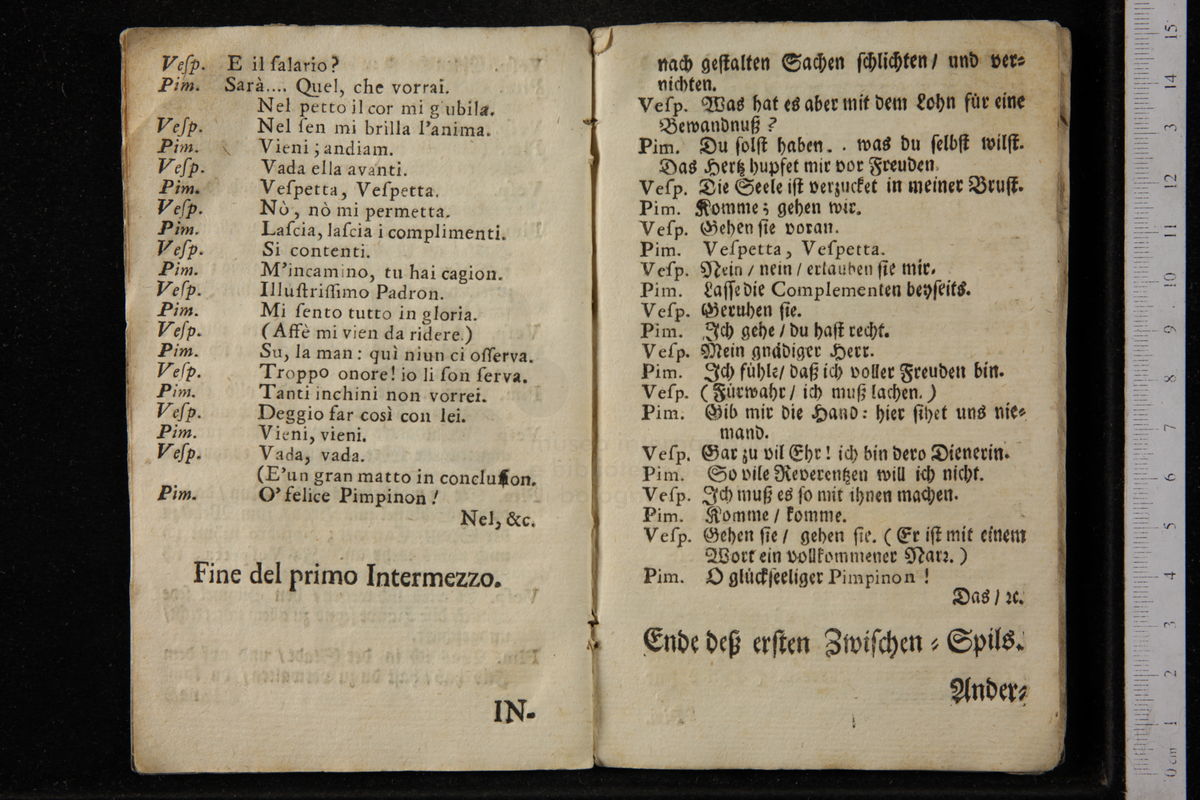 Veſp. E il ſalario?
Pim. Sarà.... Quel, che vorrai.
Nel petto il cor mi g ubila.
Veſp. Nel ſen mi brilla l'anima.
Pim. Vieni; andiam.
Veſp. Vada ella avanti.
Pim. Veſpetta, Veſpetta.
Veſp. Nò, nò mi permetta.
Pim. Laſcia, laſcia i complimenti.
Veſp. Si contenti.
Pim. M'incamino, tu hai cagion.
Veſp. Illuſtriſſimo Padron.
Pim. Mi ſento tutto in gloria.
Veſp. (Affè mi vien da ridere.)
Pim. Su, la man: quì niun ci oſſerva.
Veſp. Troppo onore! io li ſon ſerva.
Pim. Tanti inchini non vorrei.
Veſp. Deggio far così con lei.
Pim. Vieni, vieni.
Veſp. Vada, vada.
(E'un gran matto in concluſion.
Pim. O' felice Pimpinon!
Nel, &c.
Fine del primo Intermezzo.
IN-
nach geſtalten Sachen ſchlichten/ und ver⸗
nichten.
Veſp. Was hat es aber mit dem Lohn für eine
Bewandnuß?
Pim. Du ſolſt haben. . was du ſelbſt wilſt.
Das Hertz hupfet mir vor Freuden.
Veſp. Die Seele iſt verzucket in meiner Bruſt.
Pim. Komme; gehen wir.
Veſp. Gehen ſie voran.
Pim. Veſpetta, Veſpetta.
Veſp. Nein/ nein/ erlauben ſie mir.
Pim. Laſſe die Complementen beyſeits.
Veſp. Geruhen ſie.
Pim. Ich gehe/ du haſt recht.
Veſp. Mein gnädiger Herr.
Pim. Ich fühle/ daß ich voller Freuden bin.
Veſp. (Fürwahr/ ich muß lachen.)
Pim. Gib mir die Hand: hier ſihet uns nie⸗
mand.
Veſp. Gar zu vil Ehr! ich bin dero Dienerin.
Pim. So vile Reverentzen will ich nicht.
Veſp. Ich muß es ſo mit ihnen machen.
Pim. Komme/ komme.
Veſp. Gehen ſie/ gehen ſie. (Er iſt mit einem
Wort ein vollkommener Narr.)
Pim. O glückſeeliger Pimpinon!
Das/ ꝛc.
Ende deß erſten Zwiſchen⸗Spils.
Ander⸗